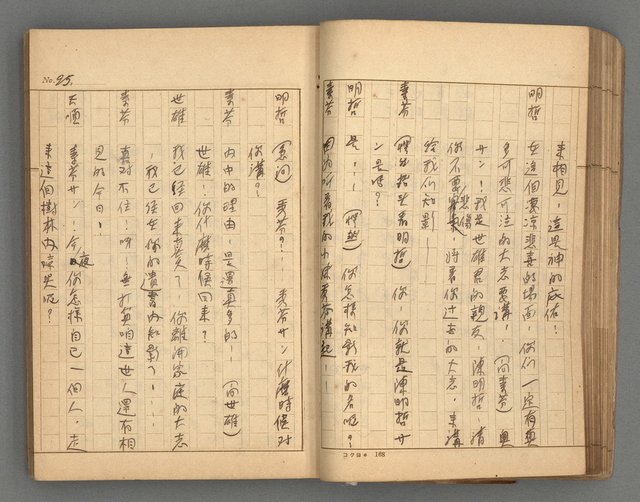 來相見，這是神的成佑！
明哲　在這個凄凉悲哀的場面，你們一定有莫
多可悲可泣的大志要講！（向素芬）奥
サン！我是世雄君的親友，陳明哲，請
你不要悲傷，將着你過去的大志，來講
給我們知影——
素芬（擡起頭看明哲）你，你就是陳明哲サ
ン是嗎？
明哲　是…（愕然）你怎樣知影我的名呢？
コクヨ 168
No. 95.
明哲（急问）素芬？！素芬サン什麼時候对
你講？
素芬　内中的理由，是還真多的——（向世雄）
世雄！你什麼時候回來？
世雄　我已經回來真久了，你離開家庭的大志
，我已經在你的遺書内知影了…
素芬　真对不住！呀！無打算咱這世人還有相
見的今日！
天順　素芬サン！今夜你怎樣自己一個人，走
來這個樹林内啼哭呢？